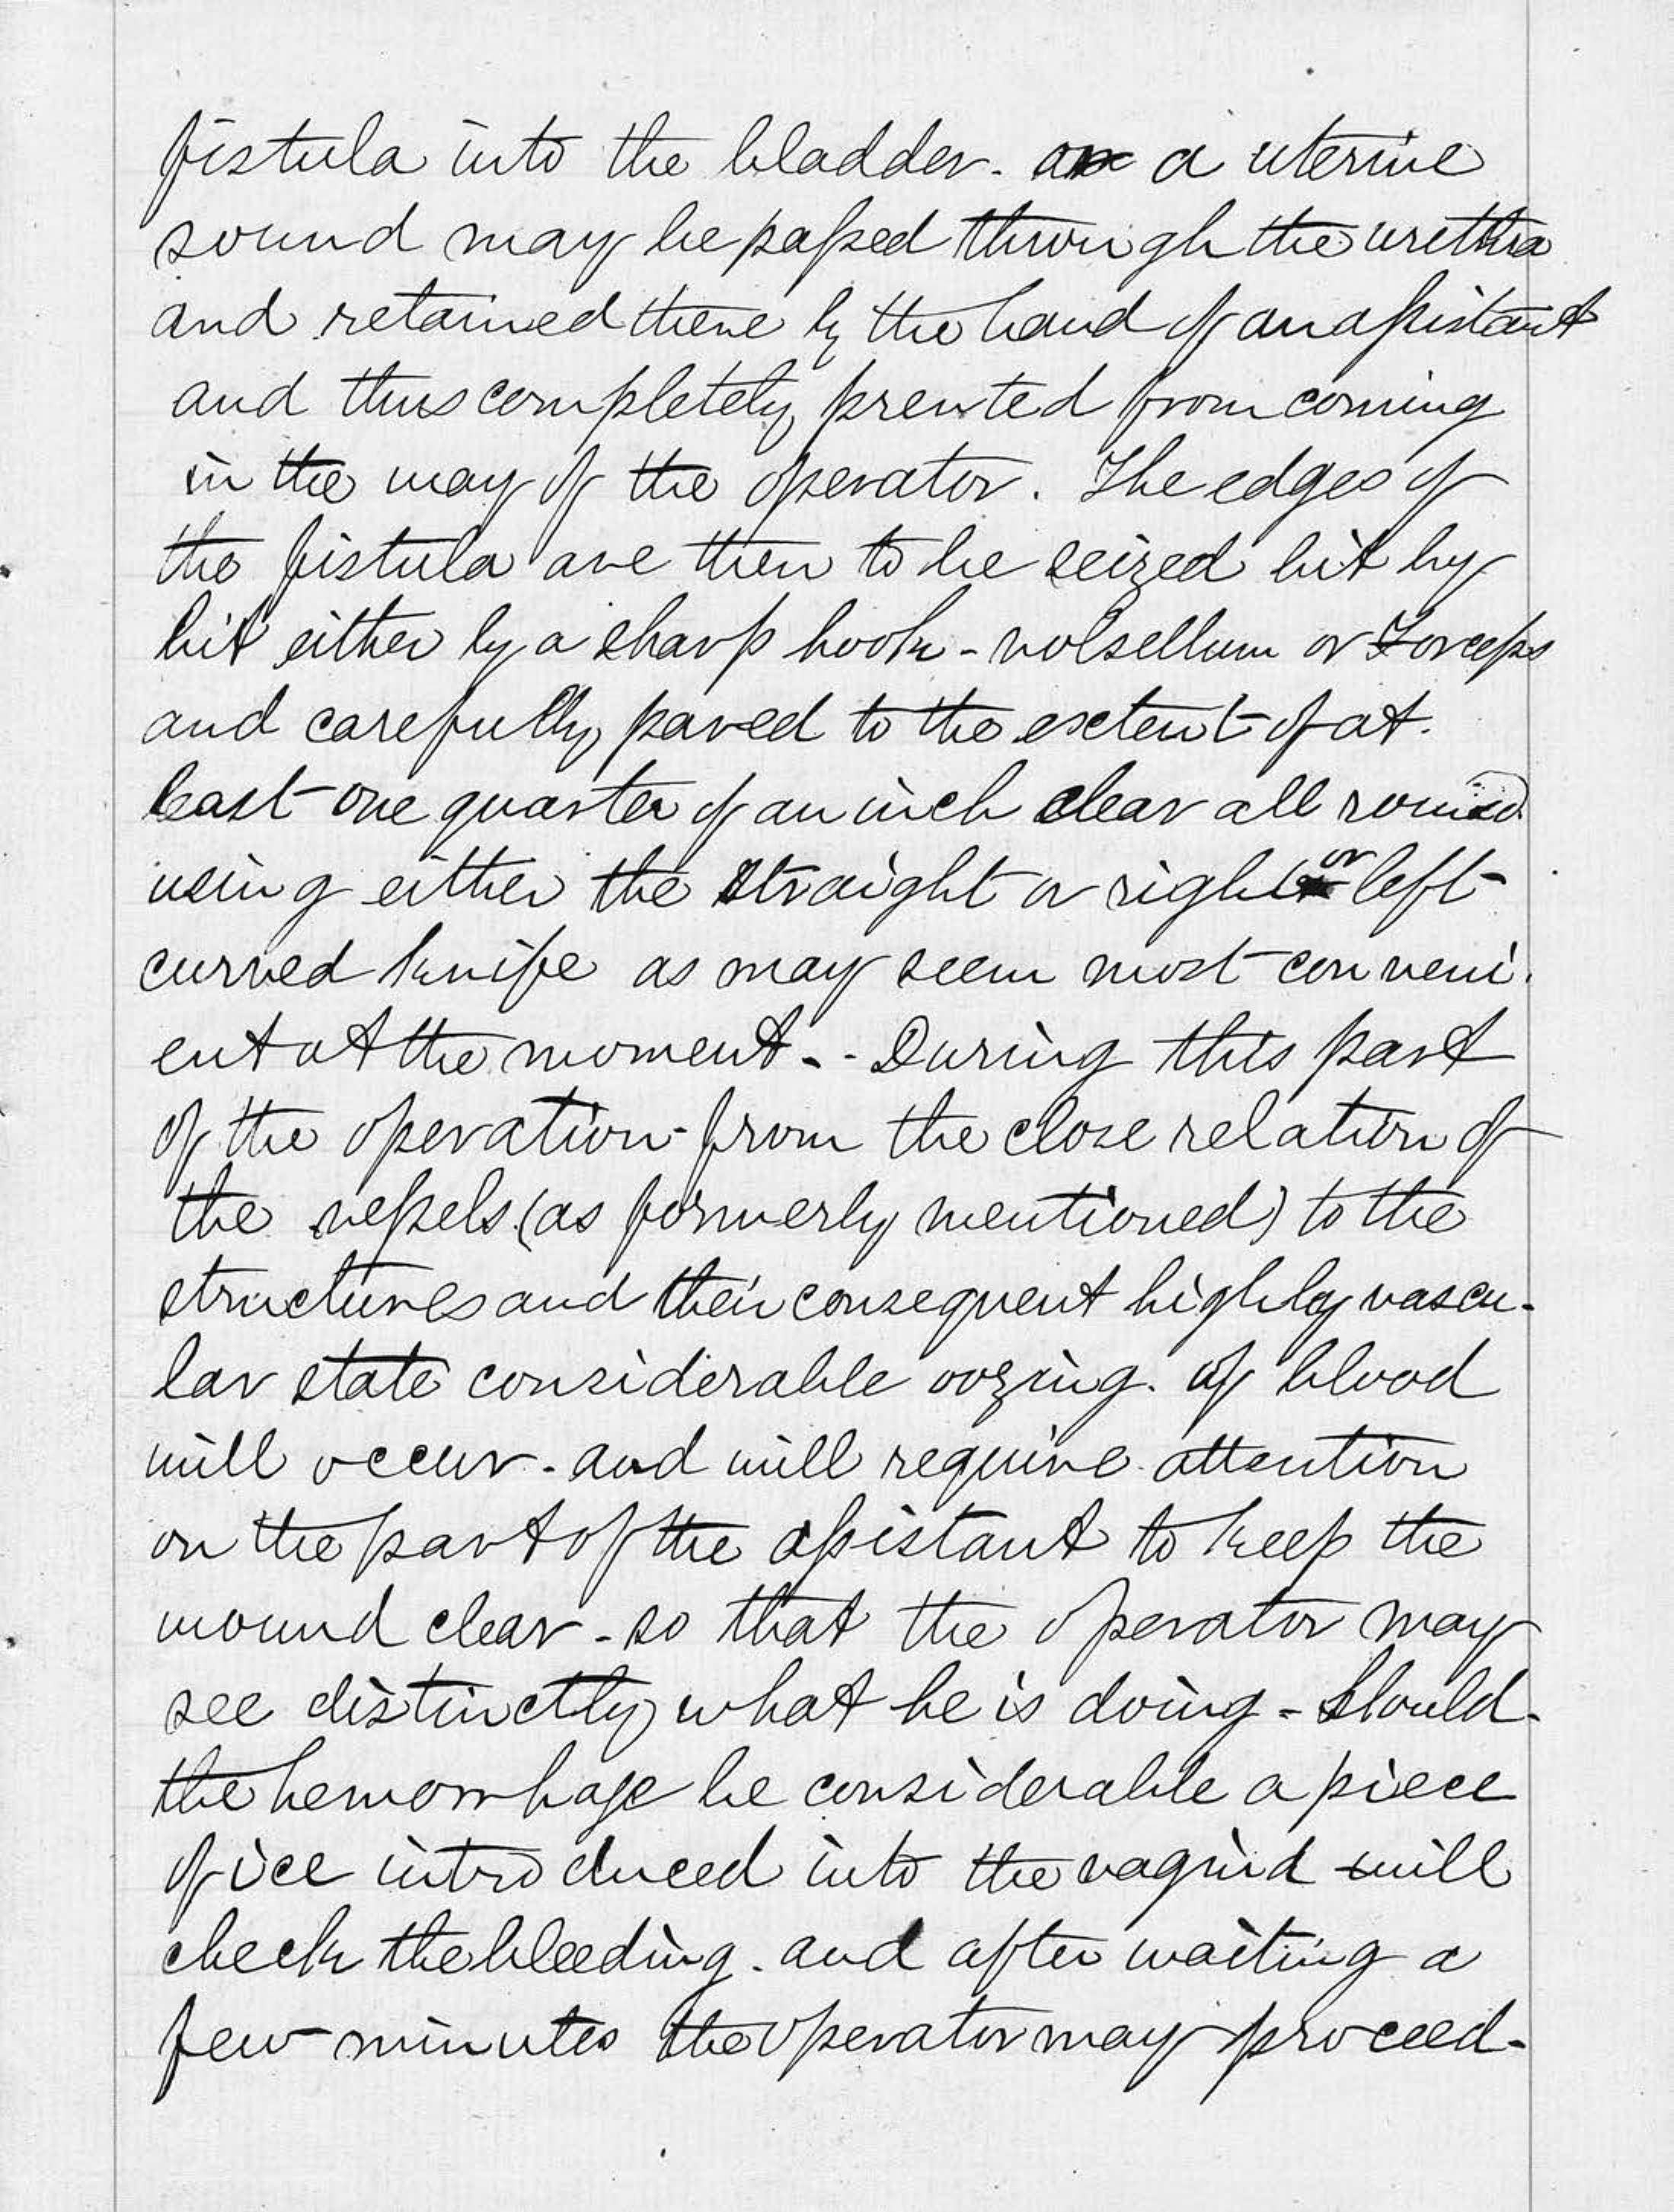 fistula into the bladder. a uterine
sound may be passed through the urethra
and retained there by the hand of an assistant
and thus completely prevted from coming
in the way of the operator. The edges of
the fistula are then to be seized bit by
bit either by a sharp hook - volsellum or Forceps
and carefully pared to the extent of at
least one quarter of an inch clear all round
using either the straight or right or left
curved knife as may seem most conveni-
ent at the moment. - During this part
of the operation - from the close relation of
the vessels (as formerly mentioned) to the
structures and their consequent highly vascu-
lar state considerable oozing. of blood
will occur. and will require attention
on the part of the assistant to keep the
wound clear - so that the operator may
see distinctly what he is doing - Should
the hemorrhage be considerable a piece
of ice introduced into the vagina will
check the bleeding. and after waiting a
few minutes the operator may proceed.